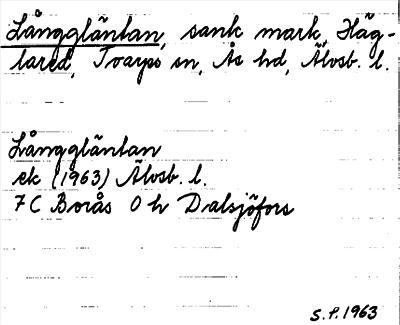 Långgläntan, sank mark, Häg-
lared, Toarps sn, Ås hd, Älvsb. l.
Långgläntan
ek (1963) Älvsb. l.
7C Borås 0h Dalsjöfors
S.P. 1963